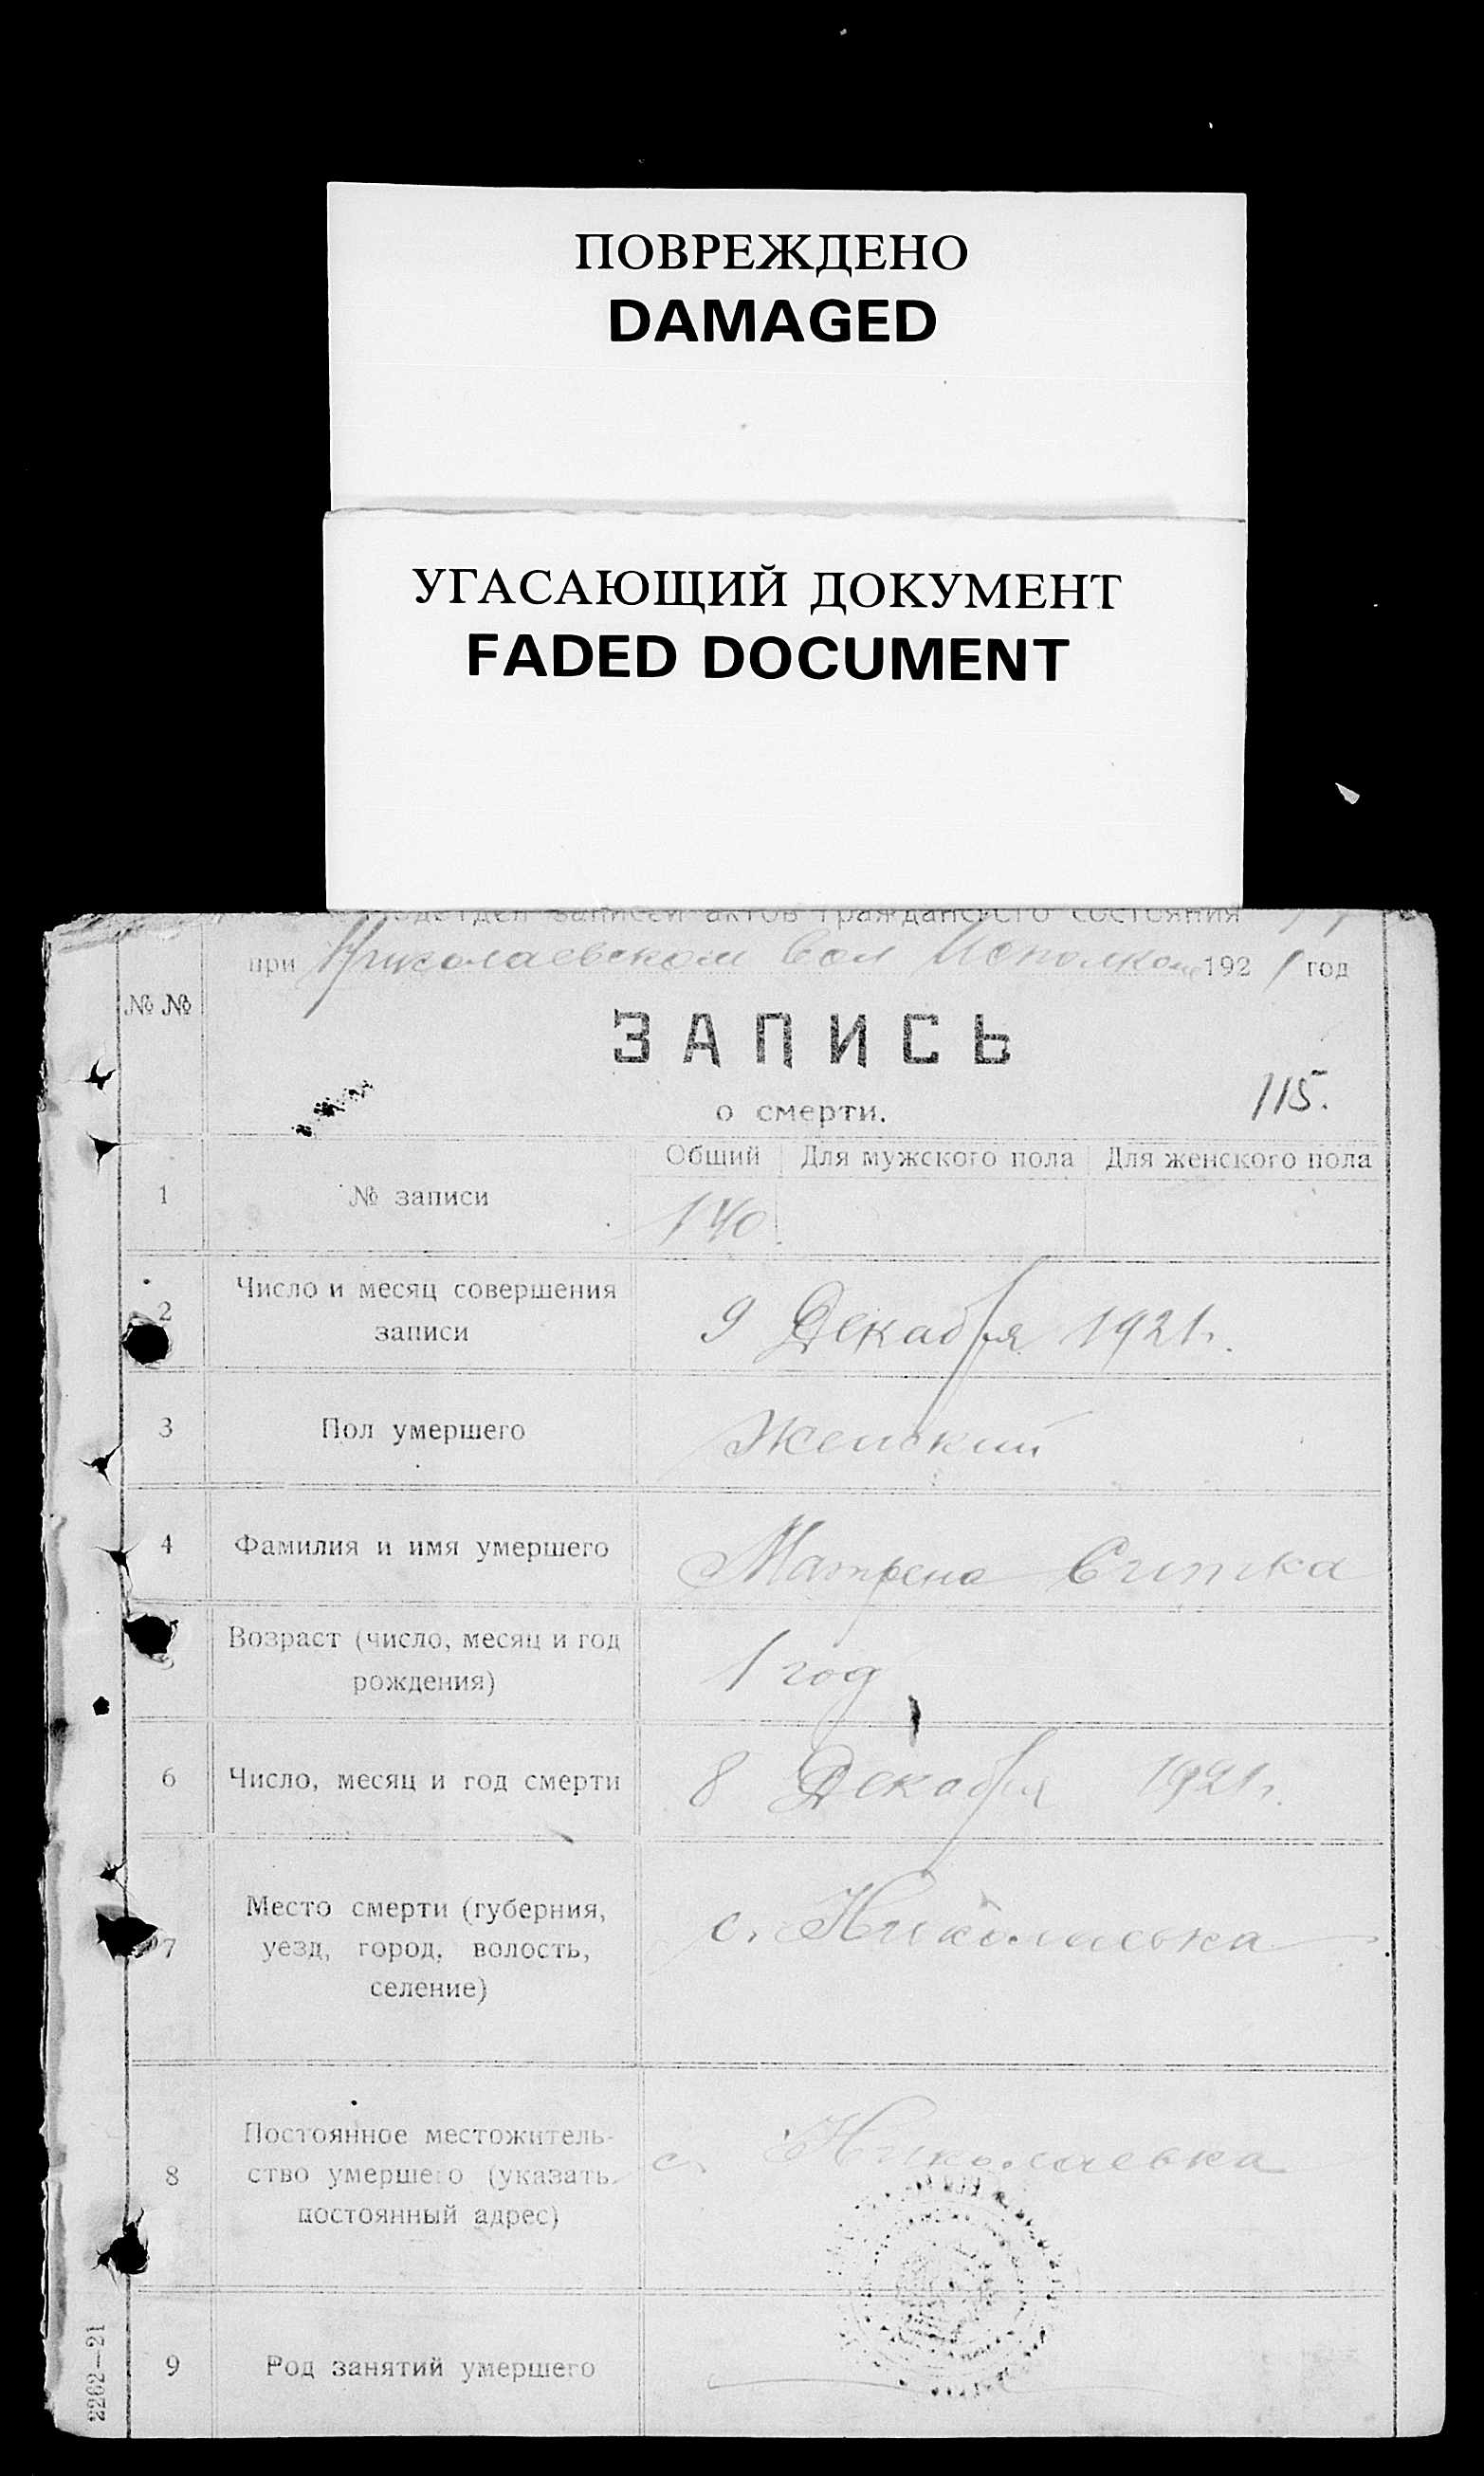 ПОВРЕЖДЕНО
DAMAGED
УГАСАЮЩИЙ ДОКУМЕНТ
FADED DOCUMENT
подотдел записей актов гражданского состояния
при Николаевском вол Исполкоме 1921 год
№ №
ЗАПИСЬ
115.
о смерти.
Общий Для мужского пола Для женского пола
1 № записи 140
2 Число и месяц совершения записи 9 Декабря 1921 г.
3 Пол умершего Женский
4 Фамилия и имя умершего Матрена
5 Возраст (число, месяц и год рождения) 1 год
6 Число, месяц и год смерти 8 Декабря 1921 г.
7 Место смерти (губерния, уезд, город, волость, селение) с. Николаевка
8 Постоянное местожительство умершего (указать постоянный адрес) с. Николаевка
9 Род занятий умершего
2262—21